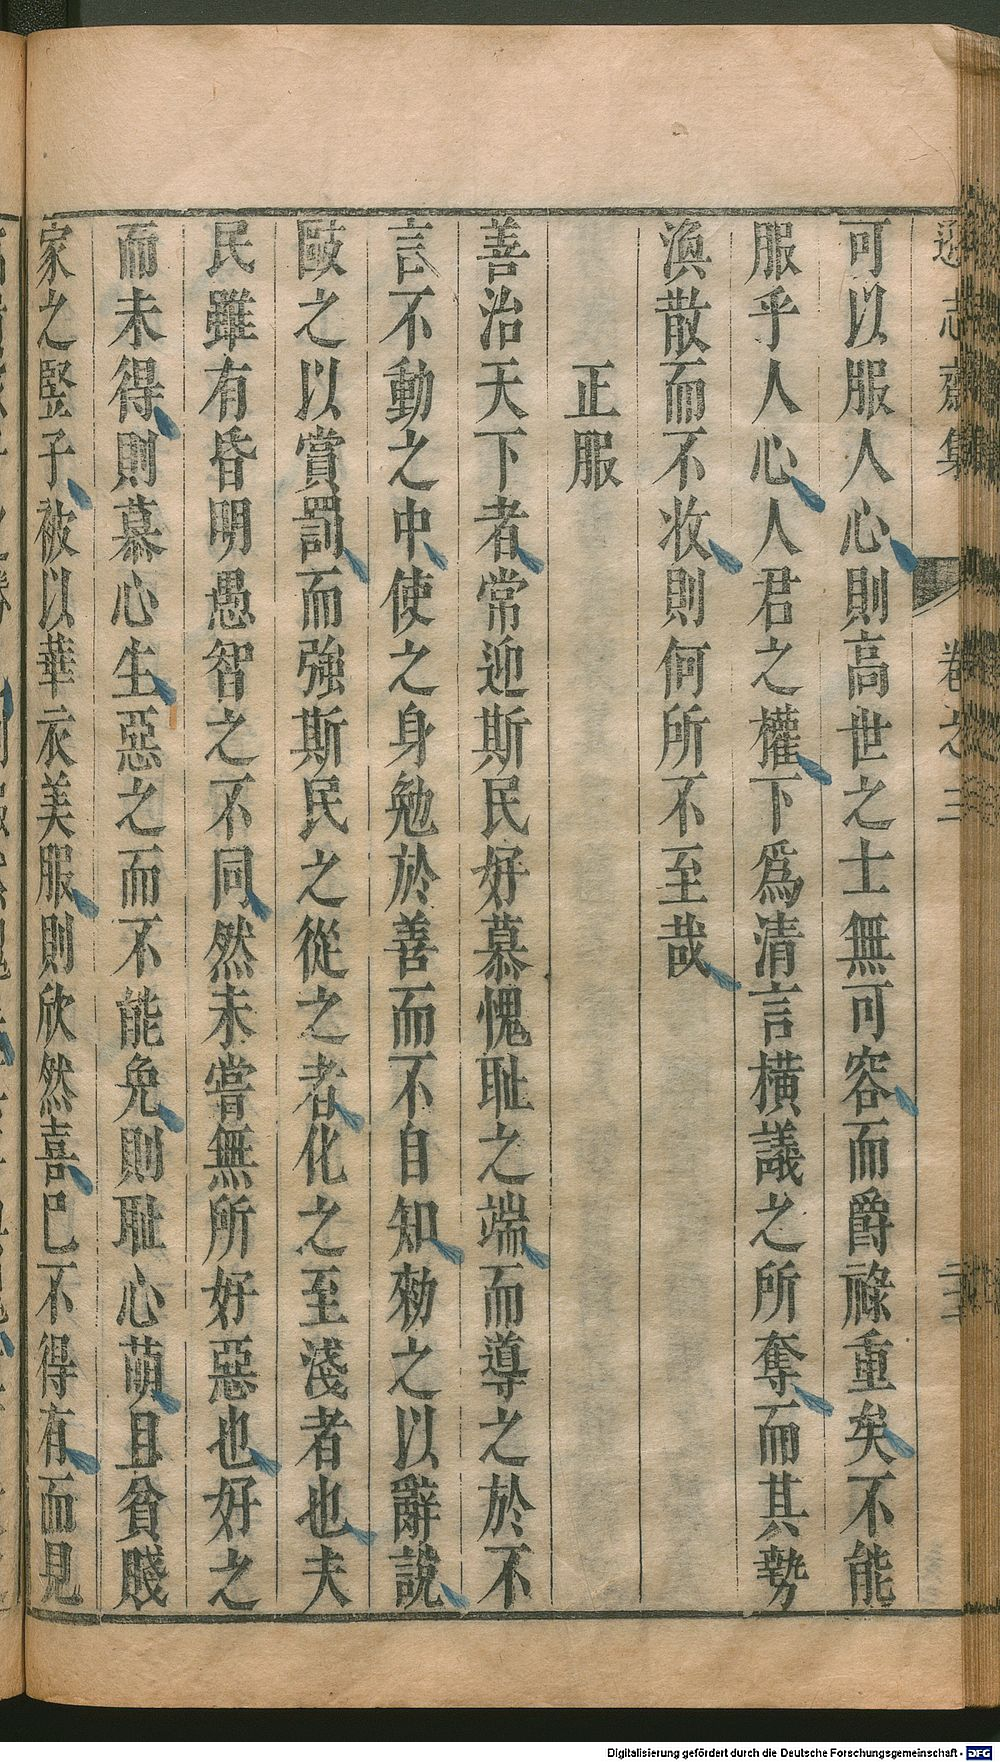 遜志齋集 卷之三 二三
可以服人心則高世之士無可容而爵祿重矣不能
服乎人心人君之權下爲清言橫議之所奪而其勢
渙散而不收則何所不至哉
正服
善治天下者常迎斯民好慕愧耻之端而導之於不
言不動之中使之身勉於善而不自知勑之以辭說
敺之以賞罰而強斯民之從之者化之至淺者也夫
民雖有昏明愚智之不同然未嘗無所好惡也好之
而未得則慕心生惡之而不能免則耻心萌且貧賤
家之竪子被以華衣美服則欣然喜巴不得有而見
Digitalisierung gefördert durch die Deutsche Forschungsgemeinschaft - DFG